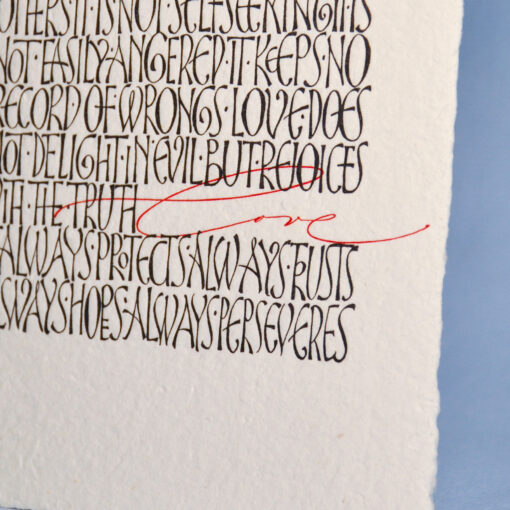 OTHERS·IT·IS·NOT·SELFSEEKING·IT·IS
NOT·EASILY·ANGERED·IT·KEEPS·NO
RECORD OF·WRONGS·LOVE·DOES
NOT·DELIGHT·IN·EVIL·BUT·REJOICES
WITH·THE·TRUTH Love
ALWAYS·PROTECTS·ALWAYS·TRUSTS
ALWAYS·HOPES·ALWAYS·PERSEVERES